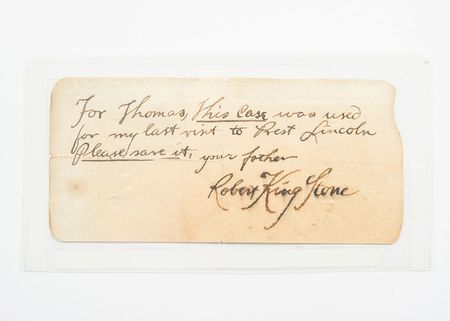 For Thomas, This Case was used
for my last visit to Prest Lincoln
Please save it, your father
Robert King Stone